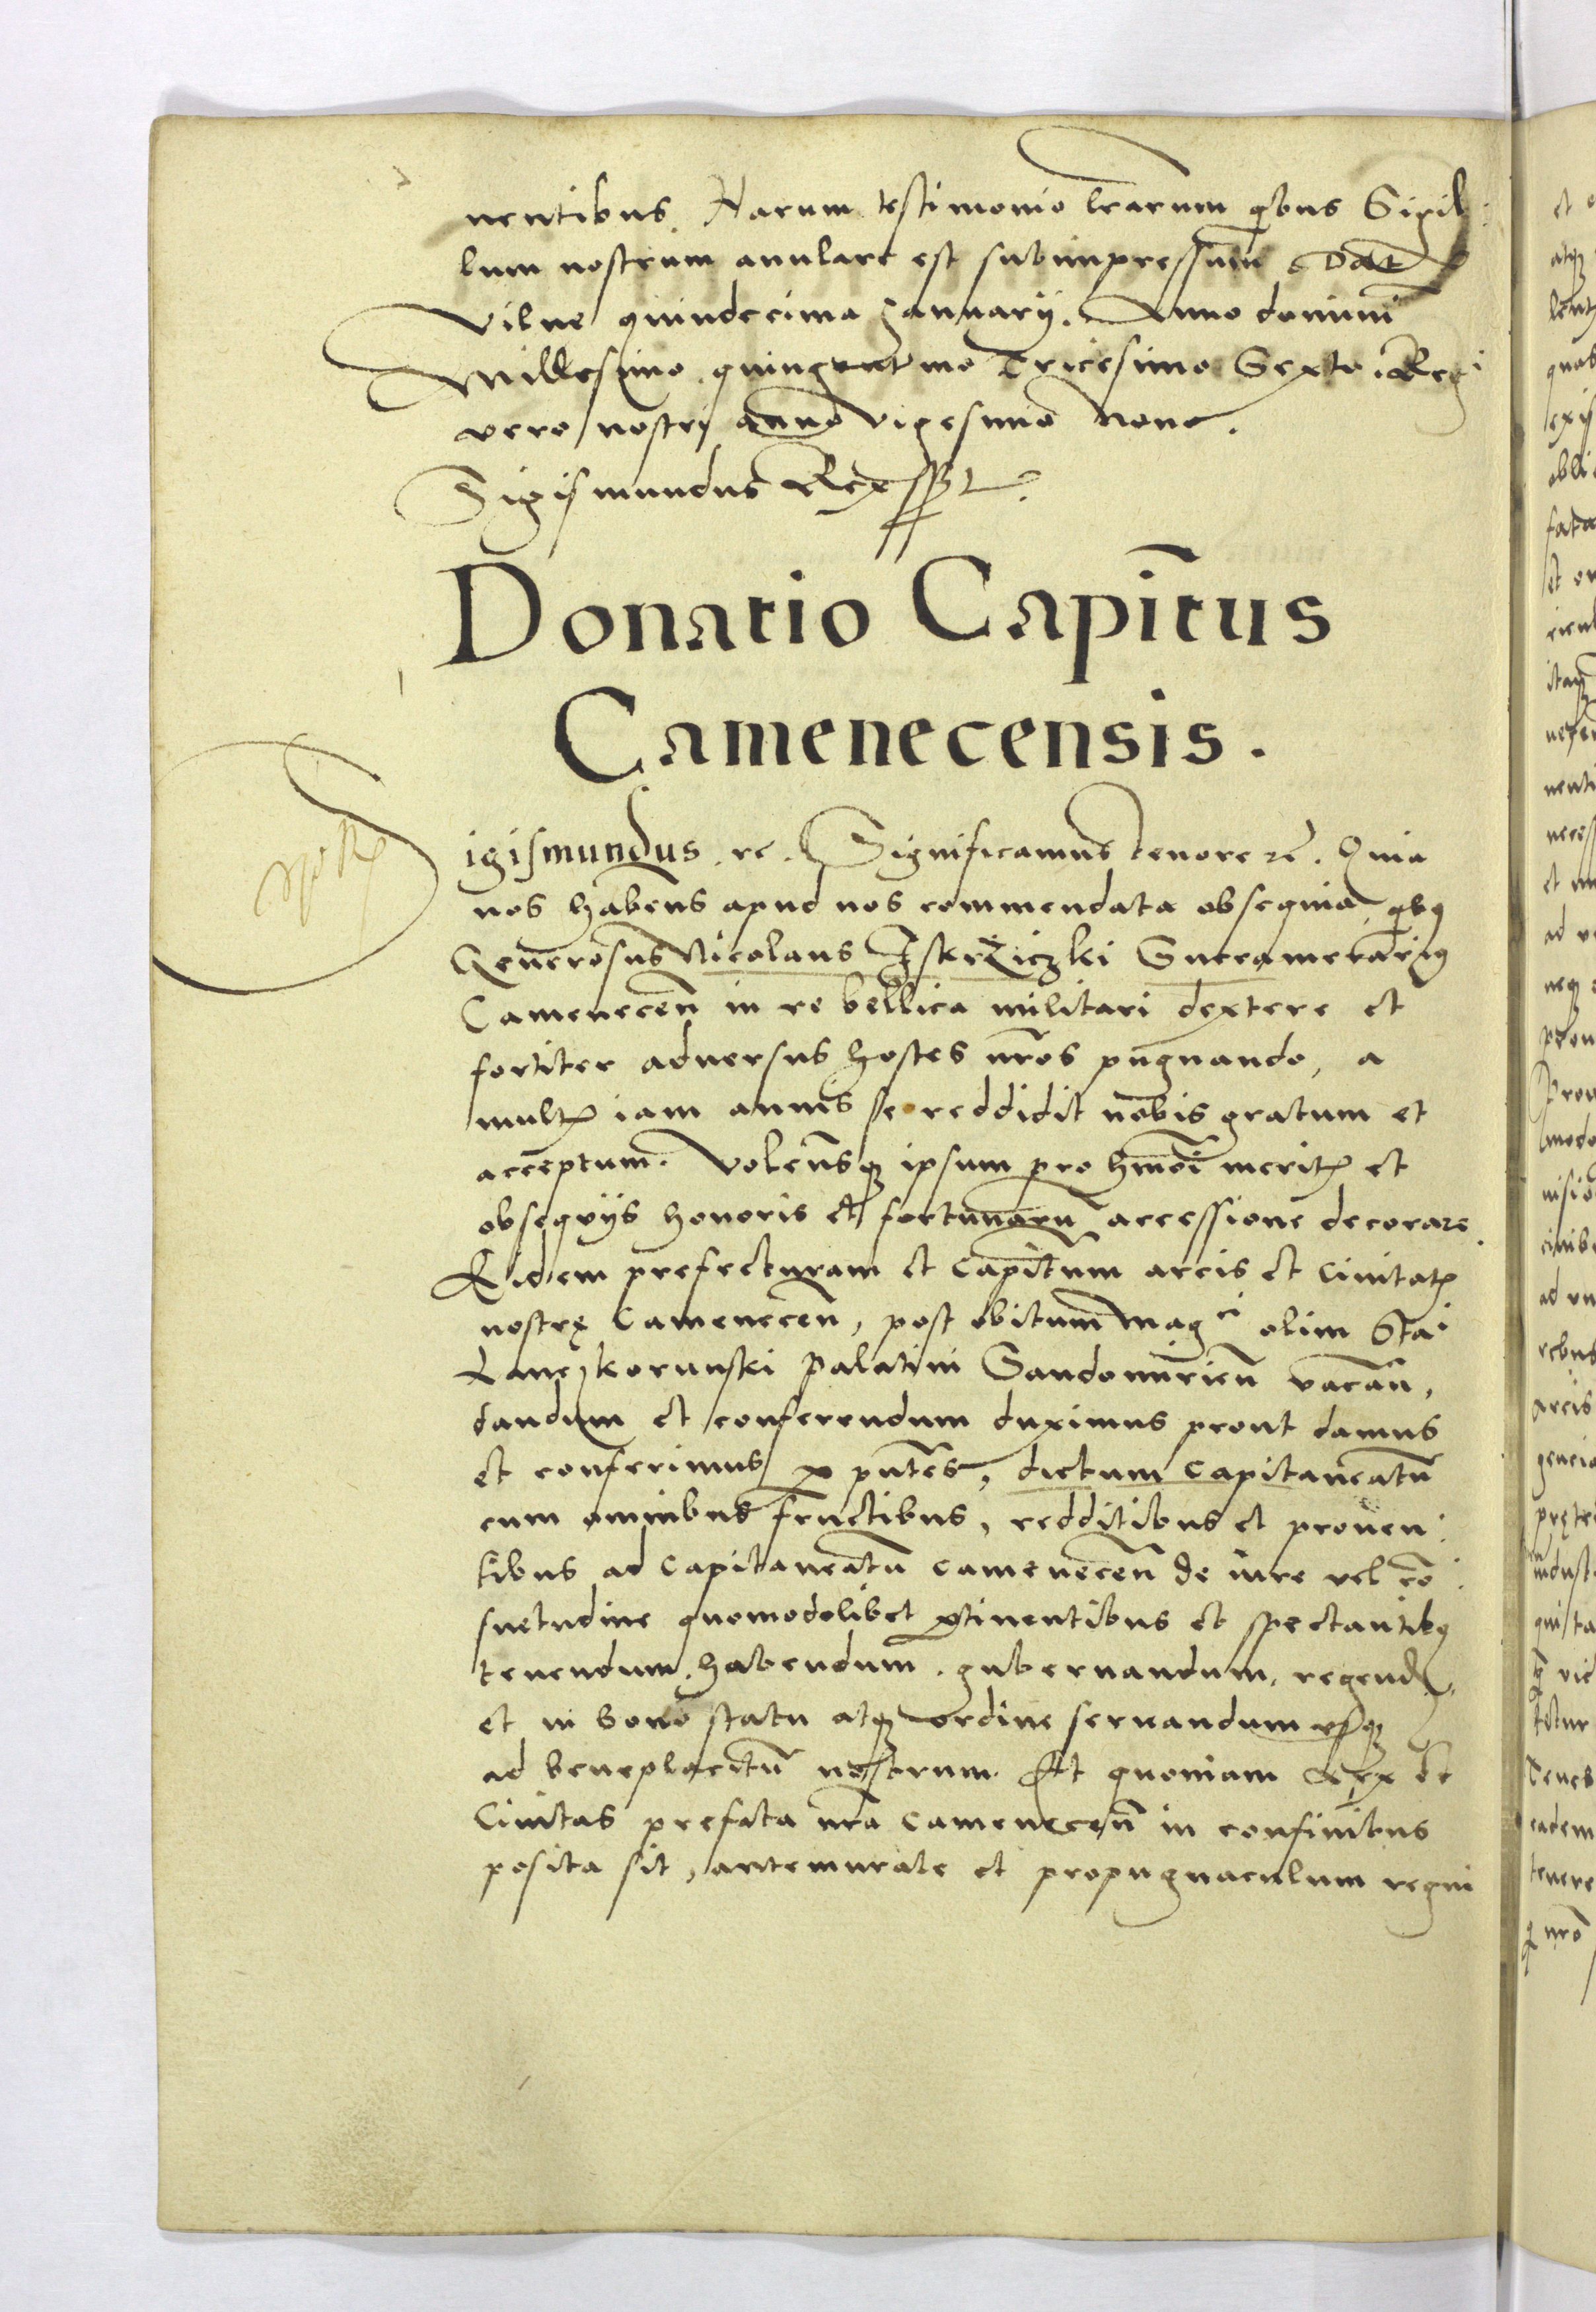 nentibus. Harum testimonio lrarum qbus Sigil:
lum nostrum anulare est subimpressum Dat
Vilne quindecima Januarij. Anno domini
Millesimo quingentmo Tricesimo Sexto. Regi
vero nostri anno vigesimo nono.
Sigismundus Rex sst.
Donatio Capitus
Camenecensis.
Sigismundus. rc. Significamus tenore rc. Quia
nos habens apud nos commendata obsequia, qbus
Generosus Nicolaus Iskrziczki Succamerarius
Camenecen in re bellica militari dextere et
fortiter adversus hostes nros pugnando, a
multis iam annis se reddidit nobis gratum et
acceptum. Volensque ipsum pro hmoi meritis et
obsequijs honoris et fortunaru accessione decorare.
Eidem prefecturam et Capitum arcis et Civitatis
nostrę Camenecen, post obitum Magci olim Stai
Lanczkorunski Palatini Sandomirien vacan,
dandum et conferendum duximus prout damus
et conferimus p pntes, dictum Capitaneatu
cum omnibus fructibus, redditibus et proven:
tibus ad Capitaneatu Camenecen de iure vel co:
suetudine quomodolibet ptinentibus et spectantibus
tenendum, habendum, gubernandum, regend,
et in bono statu atque ordine servandum usque
ad beneplacitu nostrum. Et quoniam Arx et
Civitas prefata nra Camenecen in confinibus
posita sit, antemurale et propugnaculum regni